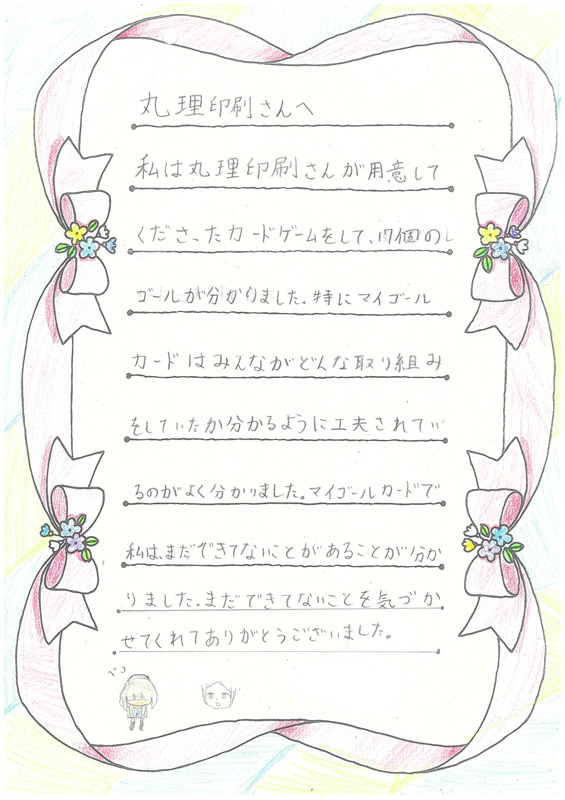 丸理印刷さんへ
私は丸理印刷さんが用意して
くださったカードゲームをして、17個の
ゴールが分かりました。特にマイゴール
カードはみんながどんな取り組み
をしていたか分かるように工夫されてい
るのがよく分かりました。マイゴールカードで
私は、まだできてないことがあることが分か
りました。まだできてないことを気づか
せてくれてありがとうございました。
ペコ